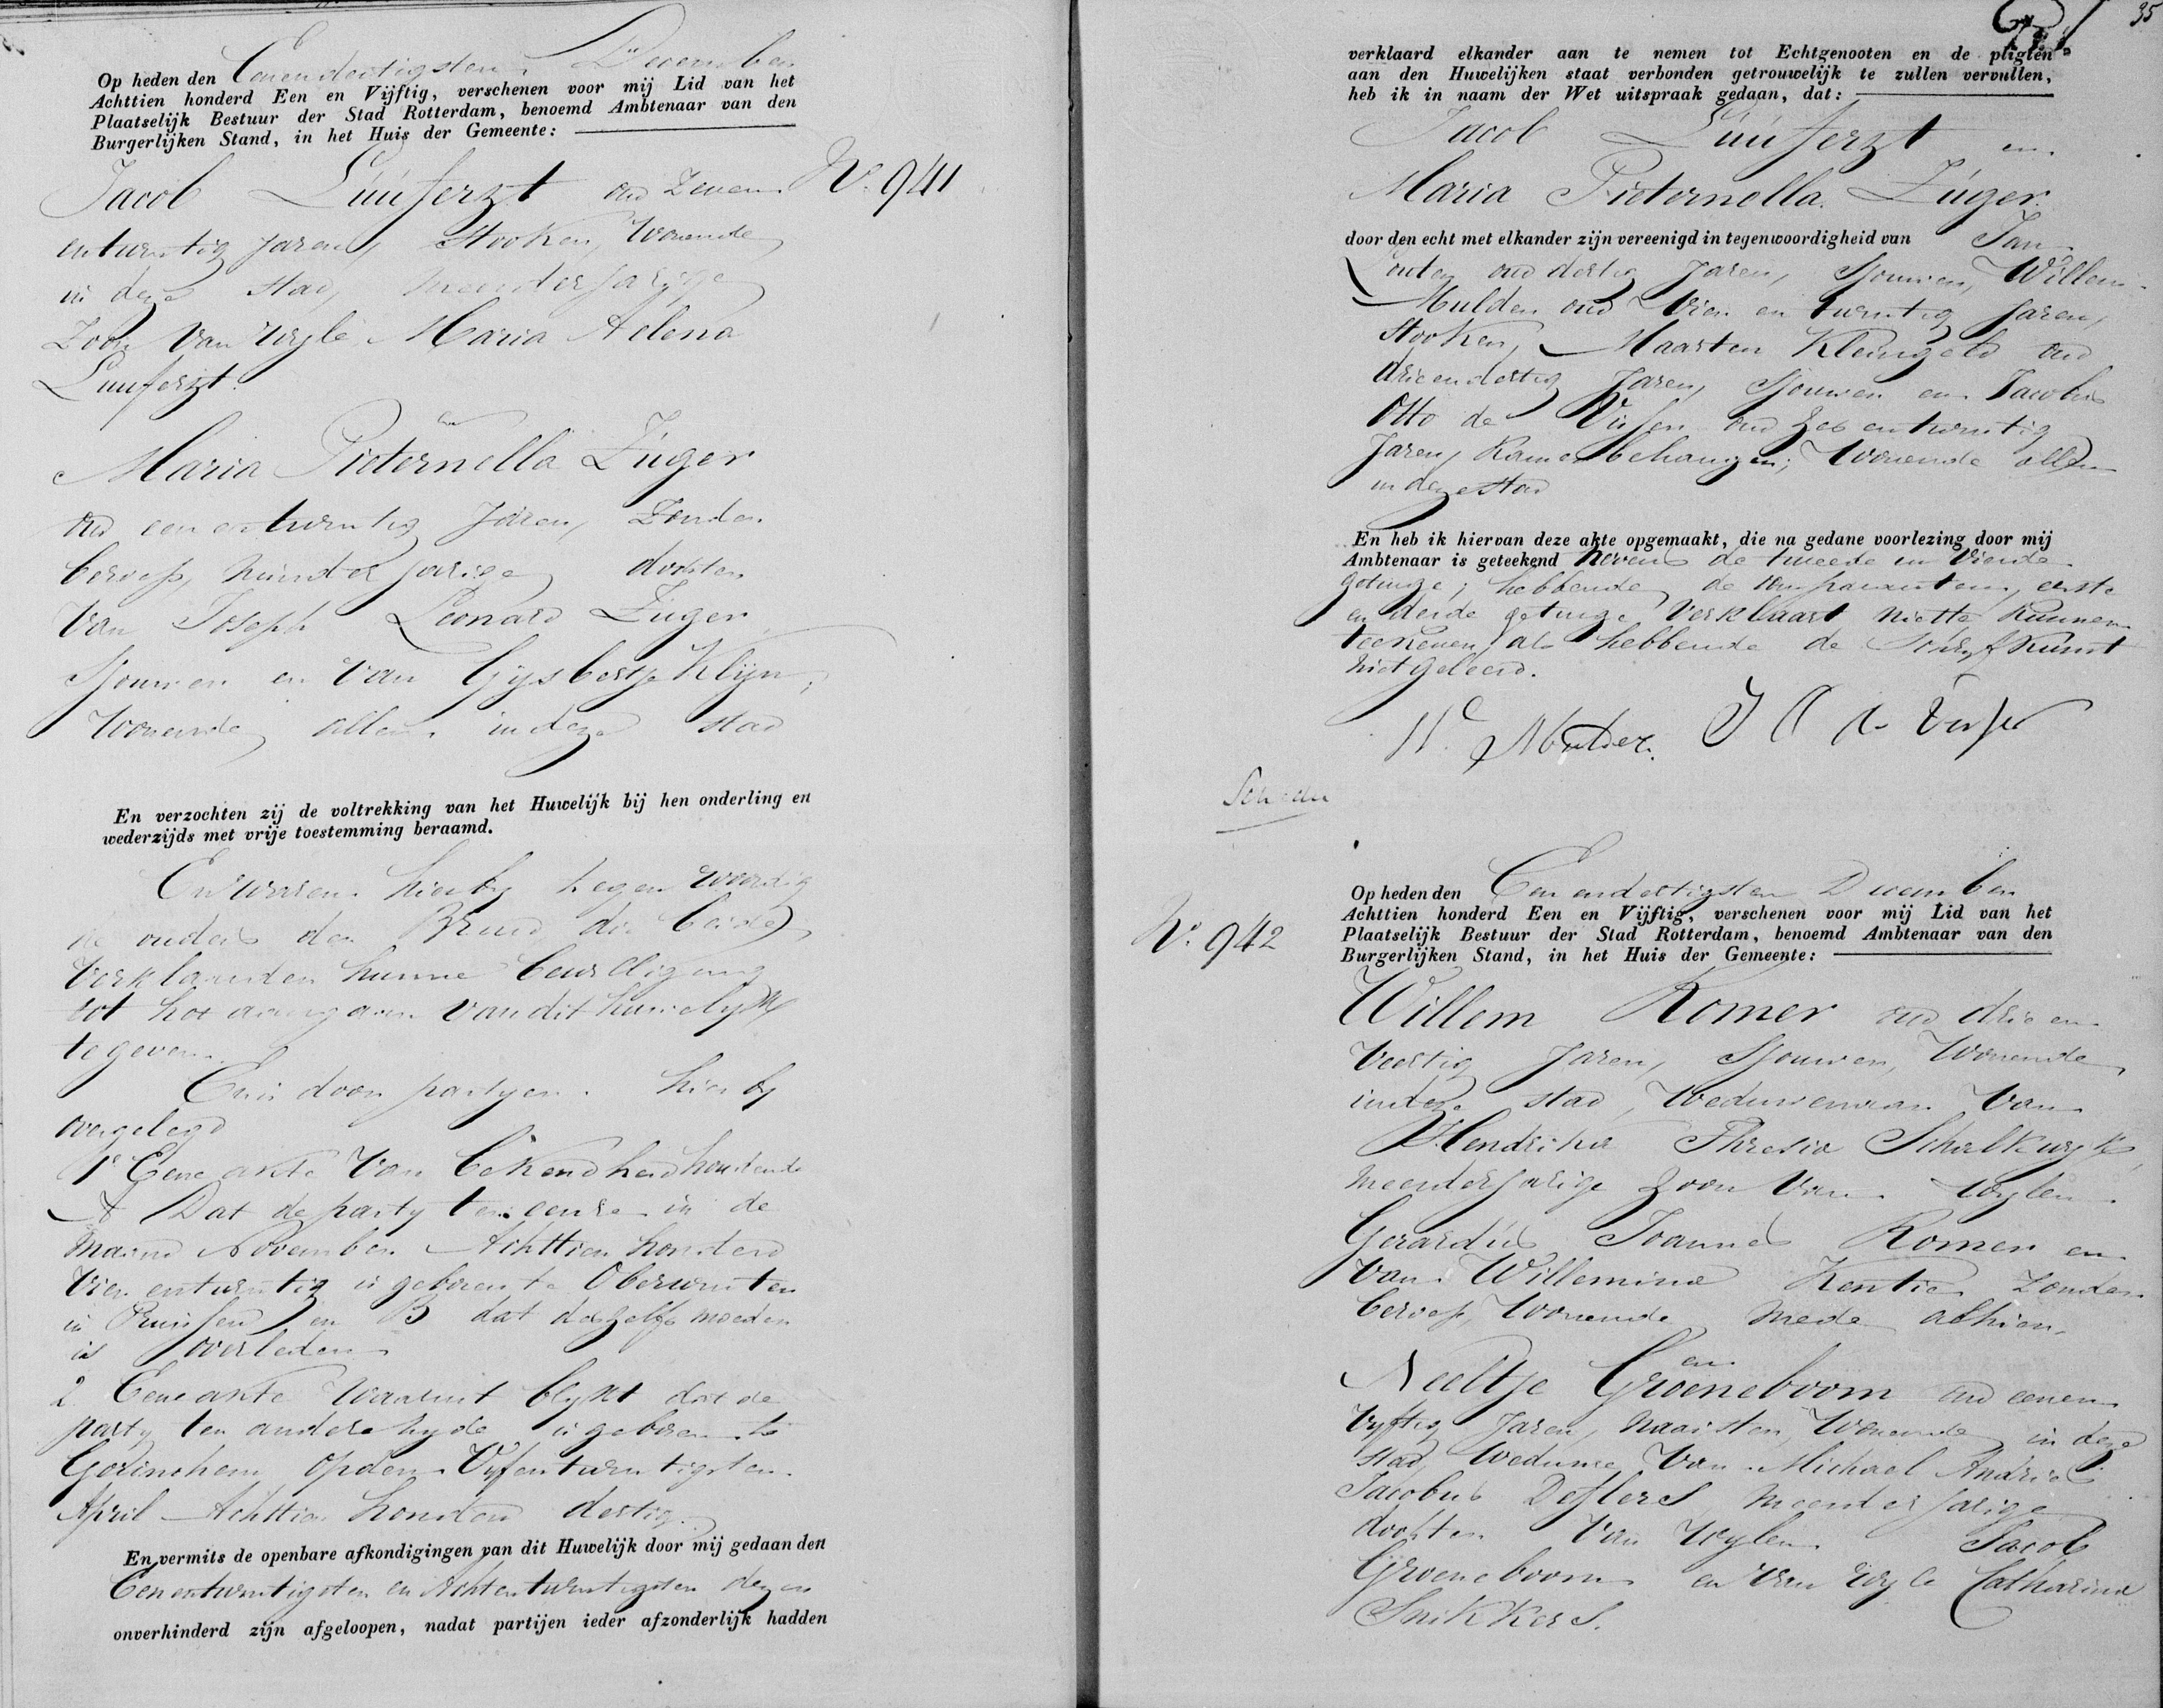 Op heden den Eenendertigsten December
Achttien honderd Een en Vijftig, verschenen voor mij Lid van het
Plaatselijk Bestuur der Stad Rotterdam, benoemd Ambtenaar van den
Burgerlijken Stand, in het Huis der Gemeente:
Nº. 941
Jacob Luuferzt oud Zeven
entwintig Jaren, Stooker, Wonende
in deze stad, meerderjarige
Zoon van wyle Maria Helena
Luuferzt.
en
Maria Pieternella Züger
oud een entwintig Jaren, Zonder
beroep, minderjarige dochter
van Joseph Leonard Züger
Sjouwer en van Gysbertje Klijn,
Wonende allen in deze stad
En verzochten zij de voltrekking van het Huwelijk bij hen onderling en
wederzijds met vrije toestemming beraamd.
En waren hierby tegenwoordig
de ouders der Bruid, die beide
verklaarden hunne bewilliging
tot het aangaan van dit huwelyk
te geven.
En is door partyen hier by
overgelegd
1º Eene akte van bekendheid houdende
A Dat de party ter eenre in de
maand November Achttien honderd
vier entwintig is geboren te
in Pruissen en B dat deszelfs moeder
is overleden
2 Eene akte waaruit blykt dat de
party ter andere zyde is geboren te
Gorinchem op den Vyfentwintigsten
April Achttien honderd dertig.
En vermits de openbare afkondigingen van dit Huwelijk door mij gedaan den
Een entwintigsten en Achtentwintigsten dezer
onverhinderd zijn afgeloopen, nadat partijen ieder afzonderlijk hadden
35
verklaard elkander aan te nemen tot Echtgenooten en de pligten
aan den Huwelijken staat verbonden getrouwelijk te zullen vervullen,
heb ik in naam der Wet uitspraak gedaan, dat:
Jacob Luuferzt en
Maria Pieternella Züger
door den echt met elkander zijn vereenigd in tegenwoordigheid van Jan
oud dertig Jaren, Sjouwer, Willem
Mulder oud Vier en twintig Jaren,
Stooker, Maarten Kleingeld oud
drieendertig Jaren, Sjouwer en Jacobus
Otto de Visser oud Zes entwintig
Jaren, Kamerbehanger; Wonende allen
in deze stad
En heb ik hiervan deze akte opgemaakt, die na gedane voorlezing door mij
Ambtenaar is geteekend nevens de tweede en Vierde
getuige; hebbende de comparanten, eerste
en derde getuige verklaart niet te kunnen
teekenen, als hebbende de Schryfkunst
niet geleerd.
W. Mulder. J O de Visser
Nº. 942
Op heden den Een endertigsten December
Achttien honderd Een en Vijftig, verschenen voor mij Lid van het
Plaatselijk Bestuur der Stad Rotterdam, benoemd Ambtenaar van den
Burgerlijken Stand, in het Huis der Gemeente:
Willem Romer oud drie en
veertig Jaren, Sjouwer, Wonende
in deze stad, Weduwenaar van
Hendrika Thresia Schalkwyk,
meerderjarige Zoon van wylen
Gerardus Joannes Romer en
van Willemina Kentie Zonder
beroep, Wonende mede alhier,
en
Neeltje Groeneboom oud eenen
vyftig Jaren, Naaister, Wonende in deze
stad, Weduwe van Michael Andries
Jacobus Deslers meerderjarige
dochter van wylen Jacob
Groeneboom en van wyle Catharina
Snikkers.